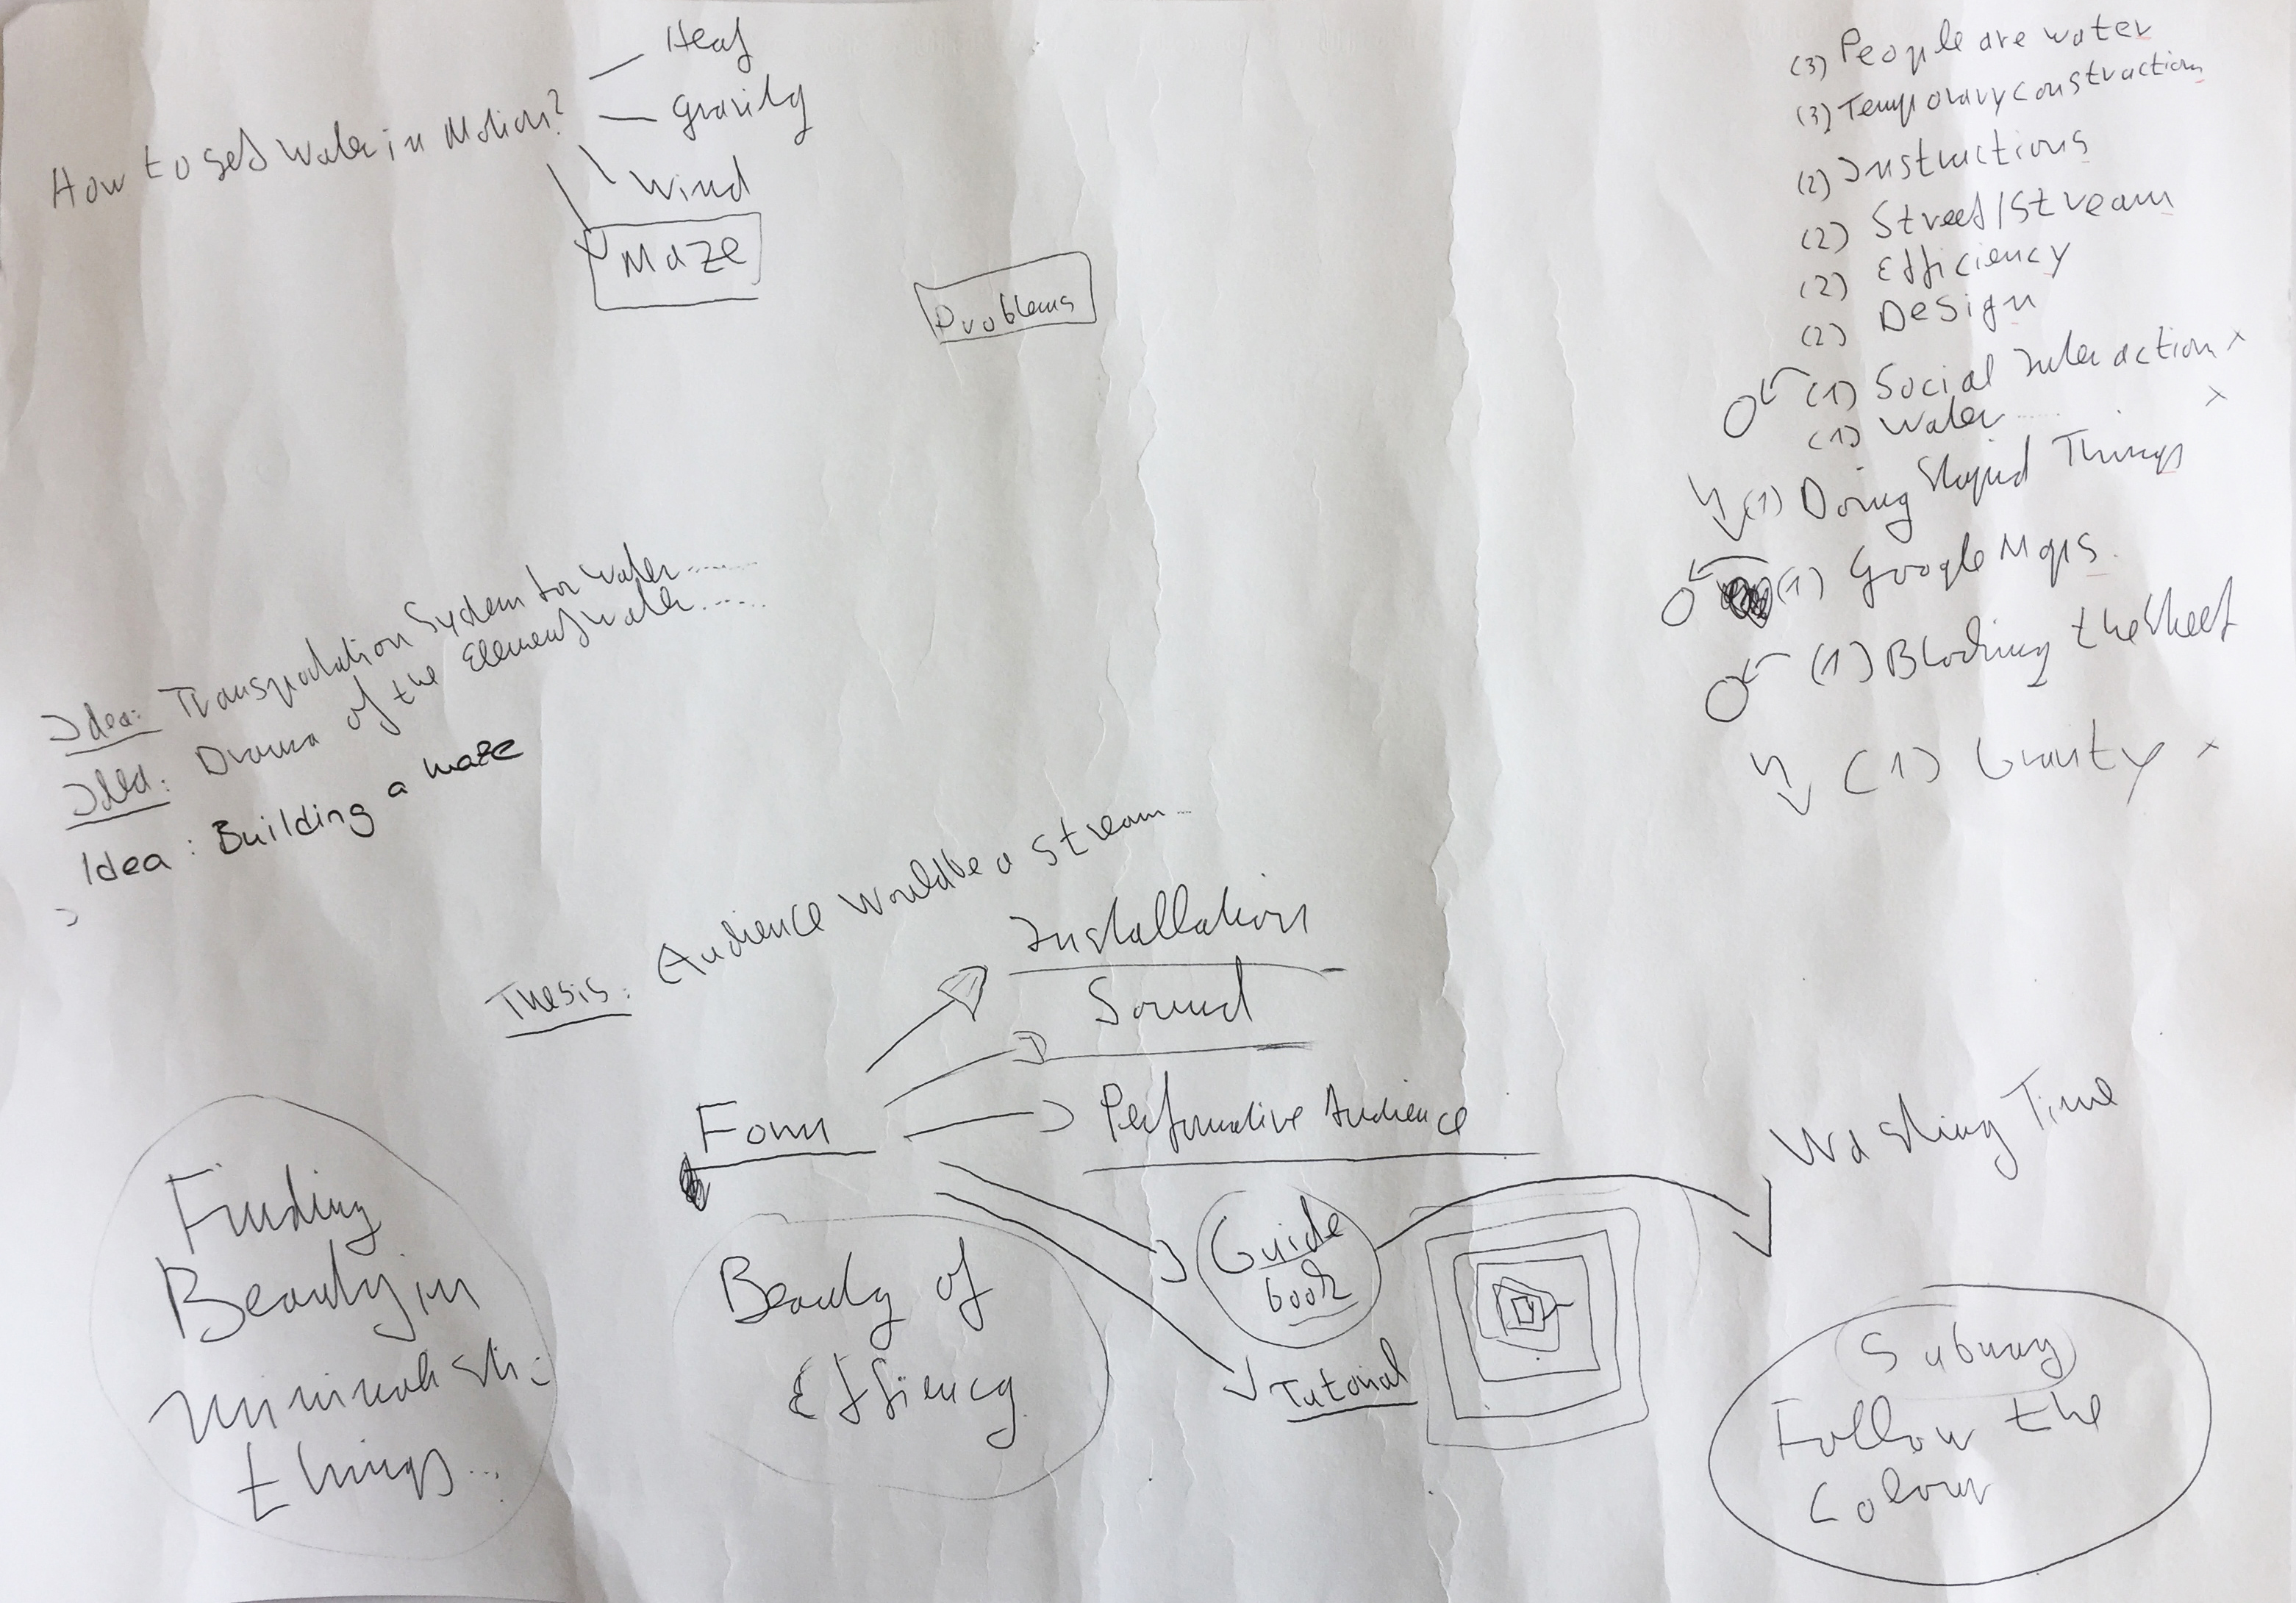 How to get Water in Motion?
Heat
Gravity
Wind
Maze
Problems
(3) People are water
(3) Temporary constructions
(2) Instructions
(2) Street/Stream
(2) Efficiency
(2) Design
(1) Social Interaction x
(1) Water ..... x
(1) Doing Stupid Things
(1) Google Maps
(1) Blocking the Street
(1) Gravity x
Idea: Transportation System for Water ......
Idea: Drama of the Element Water .....
Idea: Building a maze
Thesis: Audience would be a stream...
Form
Installation
Sound
Performative Audience
Guide
book
Tutorial
Washing Time
Finding
Beauty in
minimalisti-
things...
Beauty of
Effiency
Subway
Follow the
Colour